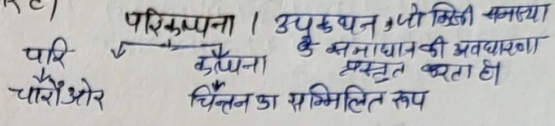 परिकल्पना । उपकथन, जो किसी समस्या
के समाधान की अवधारणा
परि कल्पना प्रस्तुत करता हो
चारों ओर चिन्तन का सम्मिलित रूप